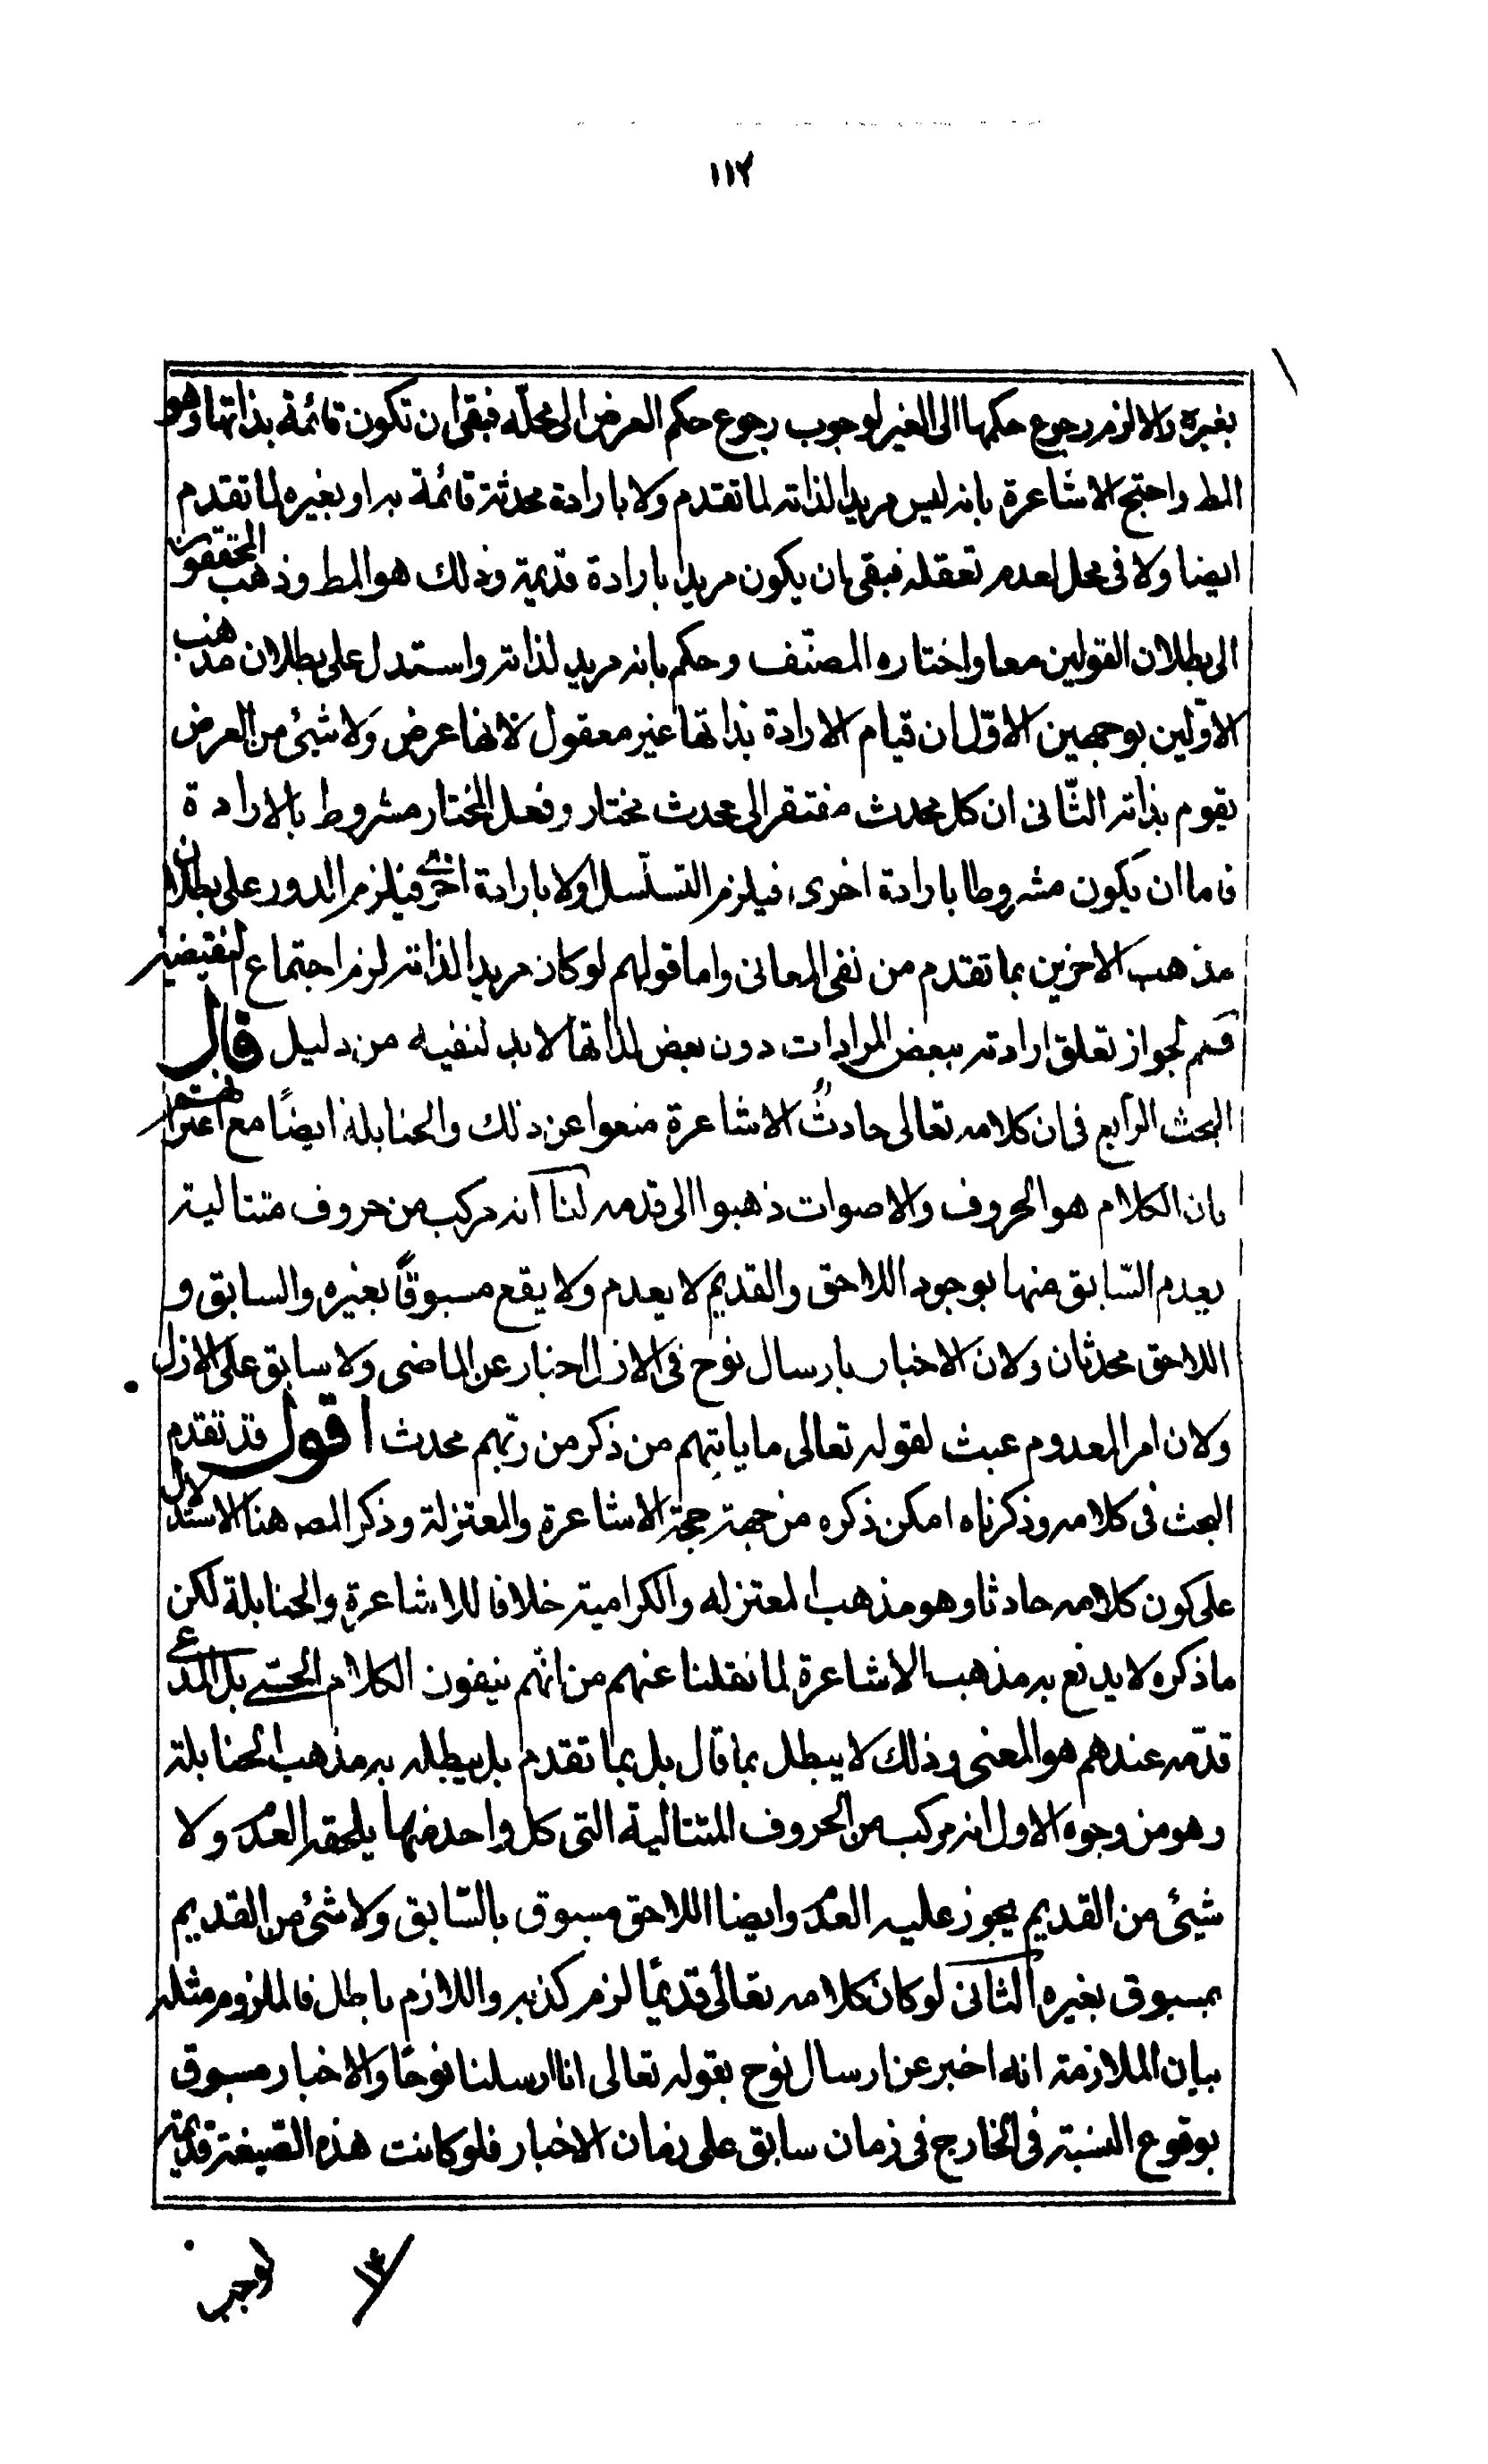 ١١٢
بغيره والا لزم رجوع حكمها الى الغير لوجوب رجوع حكم العرض الى محلّه فبقى ان تكون قائمة بذاتها وهو
المط واحتج الاشاعرة بانه ليس مريدا لذاته لما تقدم ولا بارادة محدثة قائمة به او بغيره لما تقدم
ايضا ولا فى محل لعدم تعقله فبقى ان يكون مريدا بارادة قديمة وذلك هو المط وذهب المحققون
الى بطلان القولين معا واختاره المصنّف وحكم بانه مريد لذاته واستدل على بطلان مذهب
الاوّلين بوجهين الاوّل ان قيام الارادة بذاتها غير معقول لانها عرض ولا شيئ من العرض
يقوم بذاته الثّانى ان كل محدث مفتقر الى محدث مختار وفعل المختار مشروط بالارادة
فاما ان يكون مشروطا بارادة اخرى فيلزم التسلّسل اولا بارادة اخرى فيلزم الدور على بطلان
مذهب الاخرين بما تقدم من نفى المعانى واما قولهم لو كان مريدا لذاته لزم اجتماع النقيضين
قسم لجواز تعلق ارادته ببعض المرادات دون بعض لذاتها لا بد لنفيه من دليل قال
البحث الرّابع فى ان كلامه تعالى حادثٌ الاشاعرة منعوا عن ذلك والحنابلة ايضًا مع اعترافهم
بان الكلام هو الحروف والاصوات ذهبوا الى قدمه لنا انه مركب من حروف متتالية
يعدم السّابق منها بوجود اللاحق والقديم لا يعدم ولا يقع مسبوقًا بغيره والسابق و
اللاحق محدثان ولان الاخبار بارسال نوح فى الازل اخبار عن الماضى ولا سابق على الازل
ولان امر المعدوم عبث لقوله تعالى ما ياتيهم من ذكر من ربّهم محدث اقول قد تقدم
البحث فى كلامه وذكرناه امكن ذكره من جهة حجة الاشاعرة والمعتزلة وذكر المصه هنا الاستدلال
على كون كلامه حادثا وهو مذهب المعتزله والكرامية خلافا للاشاعرة والحنابلة لكن
ما ذكره لا يدفع به مذهب الاشاعرة لما نقلنا عنهم من انّهم ينفون الكلام الحسّى بل المدعى
قدّمه عندهم هو المعنى وذلك لا يبطل بما قال بل بما تقدم بل يبطله به مذهب الحنابلة
وهو من وجوه الاول انه مركب من الحروف المتتالية التى كل واحد منها يلحقه العدم ولا
شيئ من القديم يجوز عليه العدم وايضا اللاحق مسبوق بالسّابق ولا شئ من القديم
بمسبوق بغيره الثانى لو كان كلامه تعالى قديمًا لزم كذبه واللازم باطل فالملزوم مثله
بيان الملازمة انه اخبر عن ارسال نوح بقوله تعالى انا ارسلنا نوحًا والاخبار مسبوق
بوقوع النسبة فى الخارج فى زمان سابق على زمان الاخبار فلو كانت هذه الصيغة قديمة
لوجب